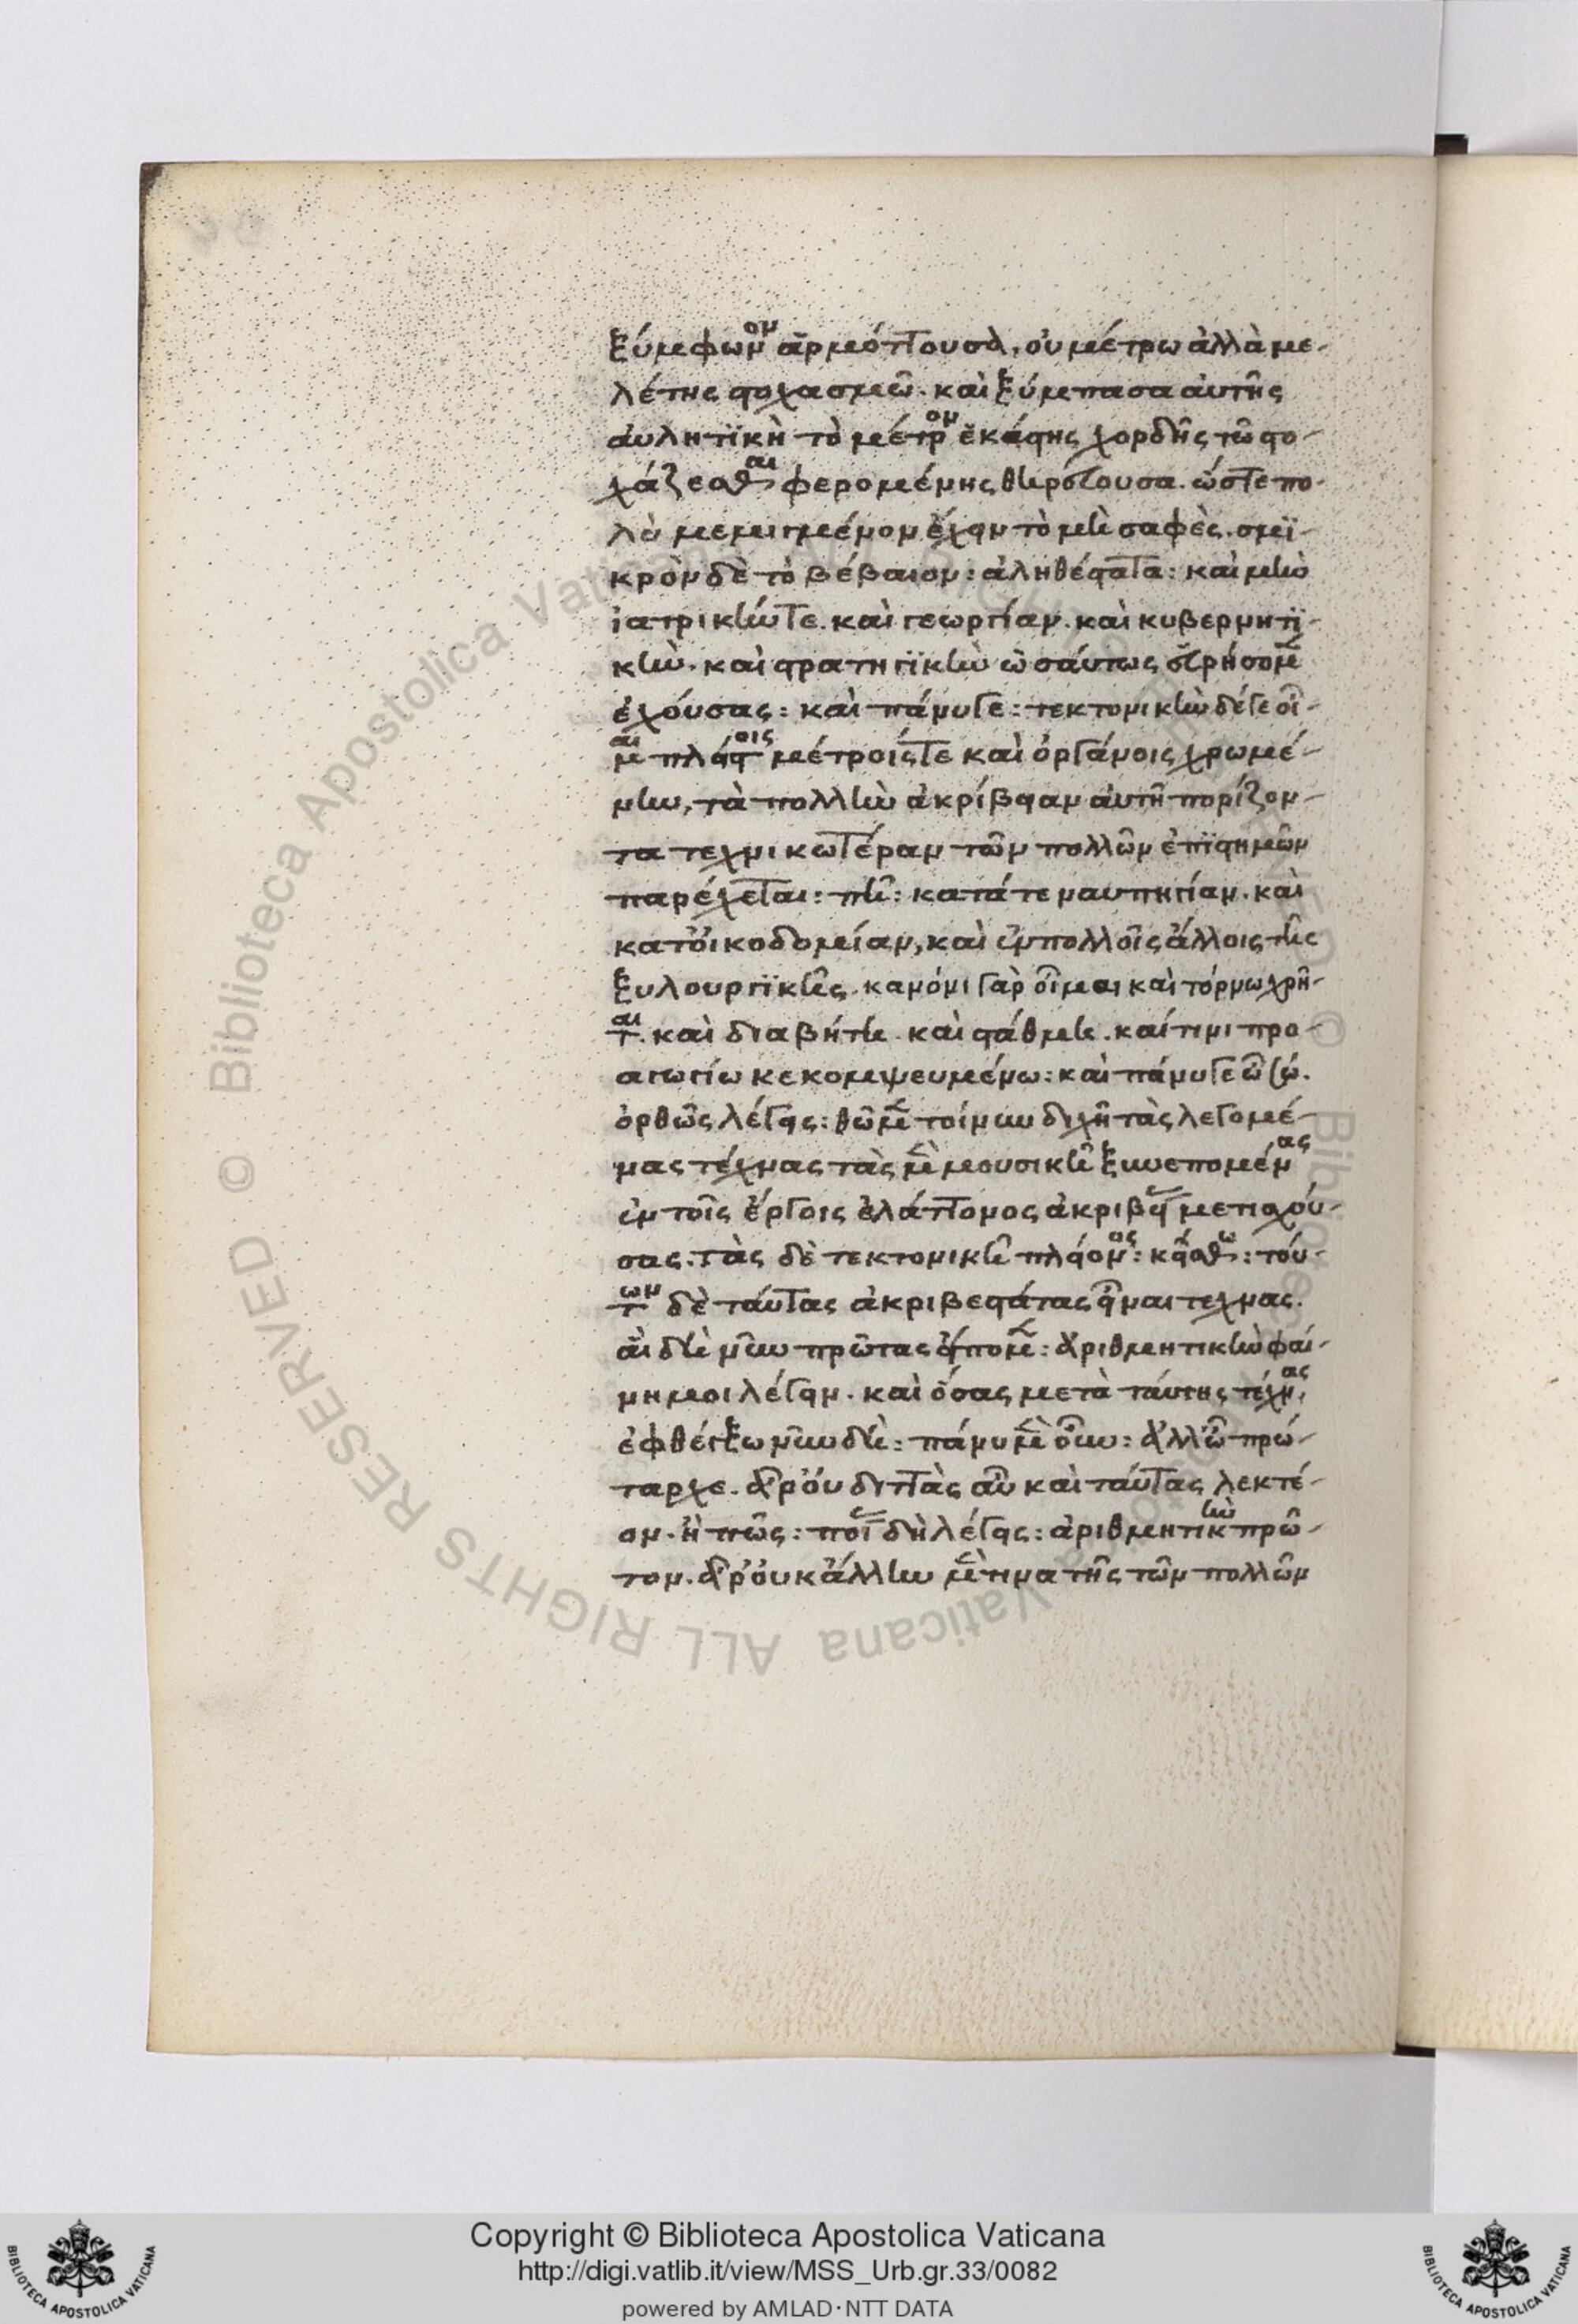 ξύμφωνον ἁρμόττουσα, οὐ μέτρω ἀλλὰ με-
λέτης στοχασμῶ. καὶ ξύμπασα αὐτῆς
αὐλητϊκὴ τὸ μέτρον ἑκάστης χορδῆς τῶ στο-
χάζεσθαι φερομένης θηρεύουσα. ὥστε πο-
λὺ μεμιγμένον ἔχειν τὸ μὴ σαφὲς. σμϊ-
κρὸν δὲ τὸ βέβαιον: ἀληθέστατα: καὶ μὴν
ἰατρικήν τε. καὶ γεωργίαν. καὶ κυβερνητϊ-
κὴν. καὶ στρατηγϊκὴν ὡσαύτως εὑρήσομεν
ἐχούσας: καὶ πάνυ γε: τεκτονικὴν δέ γε οἶ-
μαι πλείστοις μέτροις τε καὶ ὀργάνοις χρωμέ-
νην, τὰ πολλὴν ἀκρίβειαν αὐτῆ πορίζον-
τα τεχνικωτέραν τῶν πολλῶν ἐπϊστημῶν
παρέχεται: πῆ: κατά τε ναυπηγίαν. καὶ
κατ' οἰκοδομίαν, καὶ ἐν πολλοῖς ἄλλοις τῆς
ξυλουργϊκῆς. κανόνι γὰρ οἶμαι καὶ τόρνω χρῆ-
ται. καὶ διαβήτη. καὶ στάθμη. καί τινι προ-
αγωγίω κεκομψευμένω: καὶ πάνυ γε ὦ σώ.
ὀρθῶς λέγεις: θῶμεν τοίνυν διχῆ τὰς λεγομέ-
νας τέχνας τὰς μὲν μουσικῆ ξυνεπομένας
ἐν τοῖς ἔργοις ἐλάττονος ἀκριβείας μετισχού-
σας. τὰς δὲ τεκτονικῆ πλείονος: κείσθω: τού-
των δὲ ταύτας ἀκριβεστάτας εἶναι τεχνας.
ἃς δὴ νῦν πρώτας εἴπομεν: ἀριθμητικὴν φαί-
νη μοι λέγειν. καὶ ὅσας μετὰ ταύτης τέχνας
ἐφθέγξω νῦν δὴ: πάνυ μὲν οὖν: ἀλλ' ὦ πρώ-
ταρχε. ἆρ' οὐ διττὰς αὖ καὶ ταύτας λεκτέ-
ον. ἢ πῶς: ποίας δὴ λέγεις: ἀριθμητικὴν πρῶ-
τον. ἆρ' οὐκ ἄλλην μέν τινα τῆς τῶν πολλῶν
Copyright © Biblioteca Apostolica Vaticana
http://digi.vatlib.it/view/MSS_Urb.gr.33/0082
powered by AMLAD·NTT DATA
BIBLIOTECA APOSTOLICA VATICANA
BIBLIOTECA APOSTOLICA VATICANA
© Biblioteca Apostolica Vaticana ALL RIGHTS RESERVED